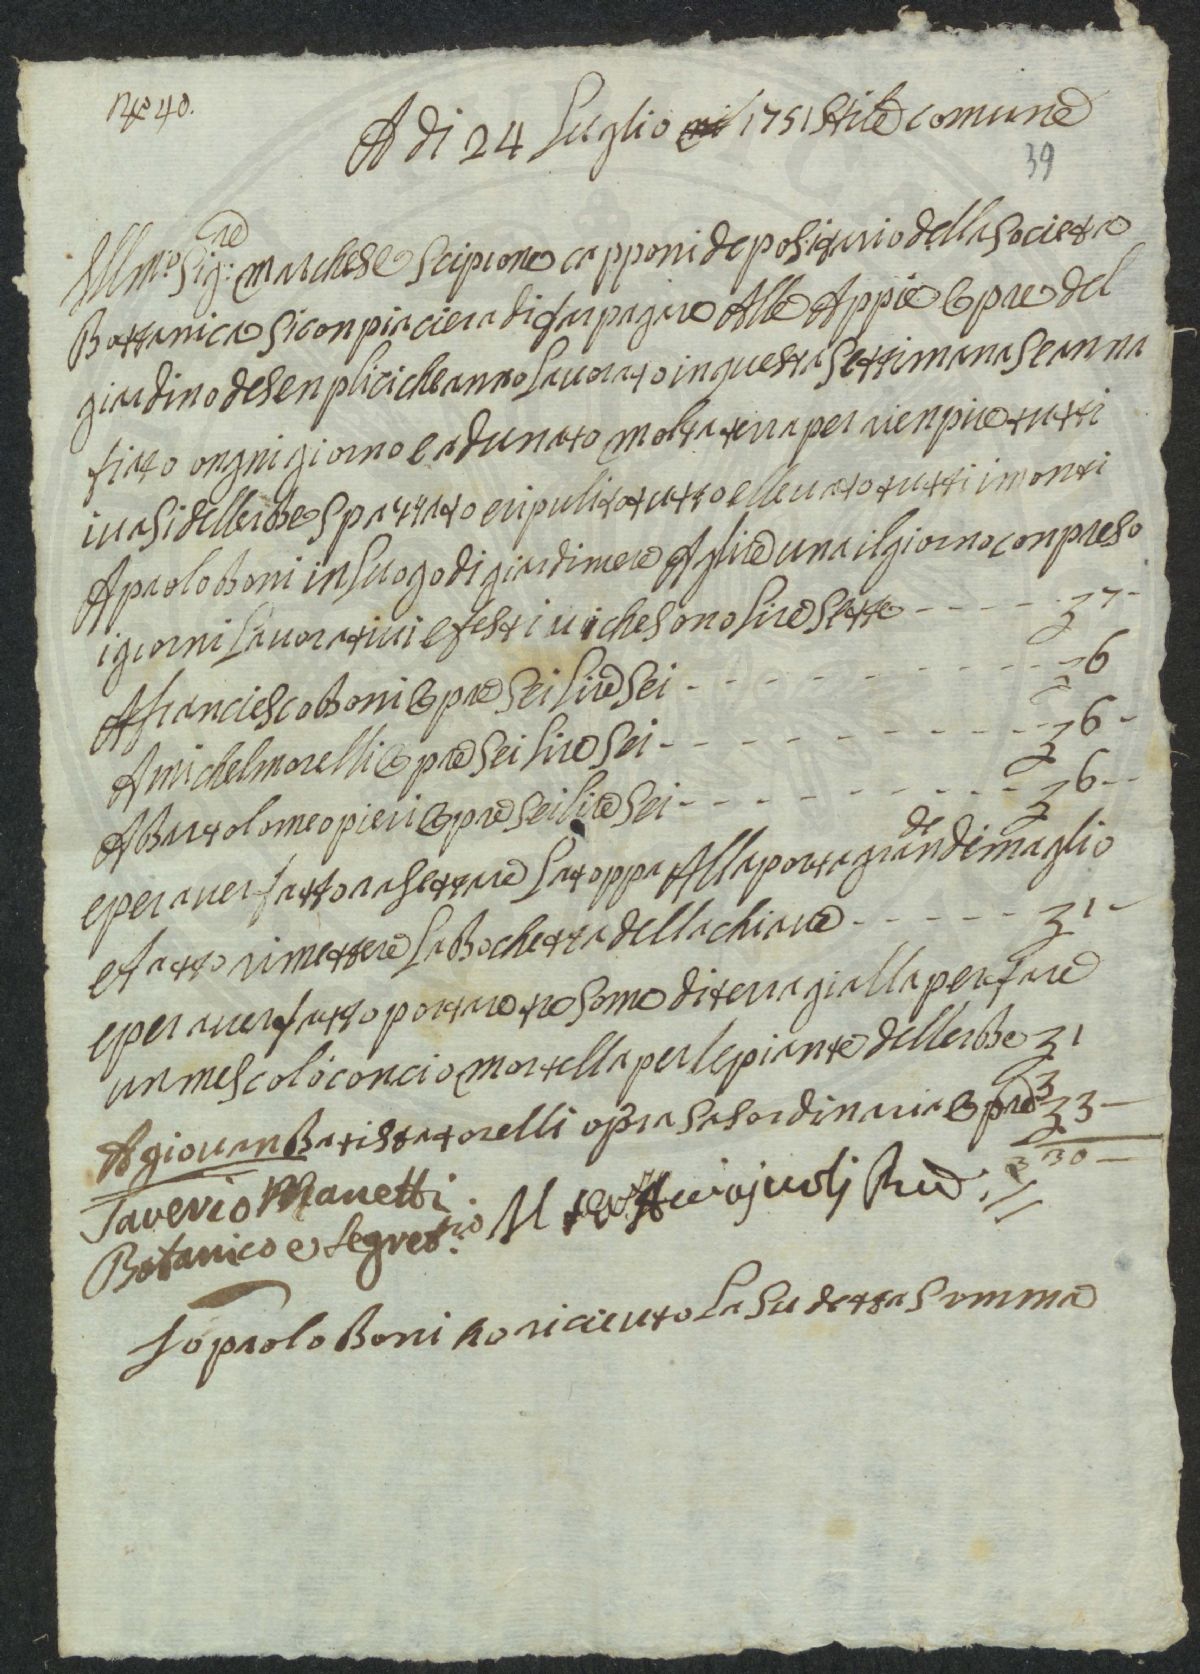 N° 40.
A di 24 Luglio 1751 stile comune
39
Ill.mo Sig.re marchese Scipione capponi depositario della Societa
Bottanica Si conpiaciera di far pagare Alle Appie Opre del
giardino de Senplici che anno Lauorato in questa Settimana Se anna
fiato ongni giorno e adunato molta terra per rienpire tutti
i uasi dellerbe Spazzato e ripulito tutto elleuato tutti i monti
A paolo Boni in Luogo di giardiniere A Lire una il giorno conpreso
i giorni Lauoratiui e festiui che sono Lire Sette - - - - - £ 7 -
A franciesco Boni Opre Sei Lire Sei - - - - - - - - - £ 6
A michel morelli Opre Sei Lire Sei - - - - - - - - - £ 6 -
A Bartolomeo pieri Opre Sei Lire Sei - - - - - - - - £ 6 - -
e per auer fatto rasettare La toppa Alla porta grande di maglio
e fatto rimettere La Bochetta della chiaue - - - - - £ 1 -
e per auer fatto portare tre Some di terra gialla per fare
un mescolo concio mortella per le piante dellerbe £ 1
A giouan Batista torelli opra Sasordinaria Opre 3 £ 3 -
£ 30 -
Saverio Manetti
Botanico e Segret.rio
Io paolo Boni ho riceuto La Su detta Somma